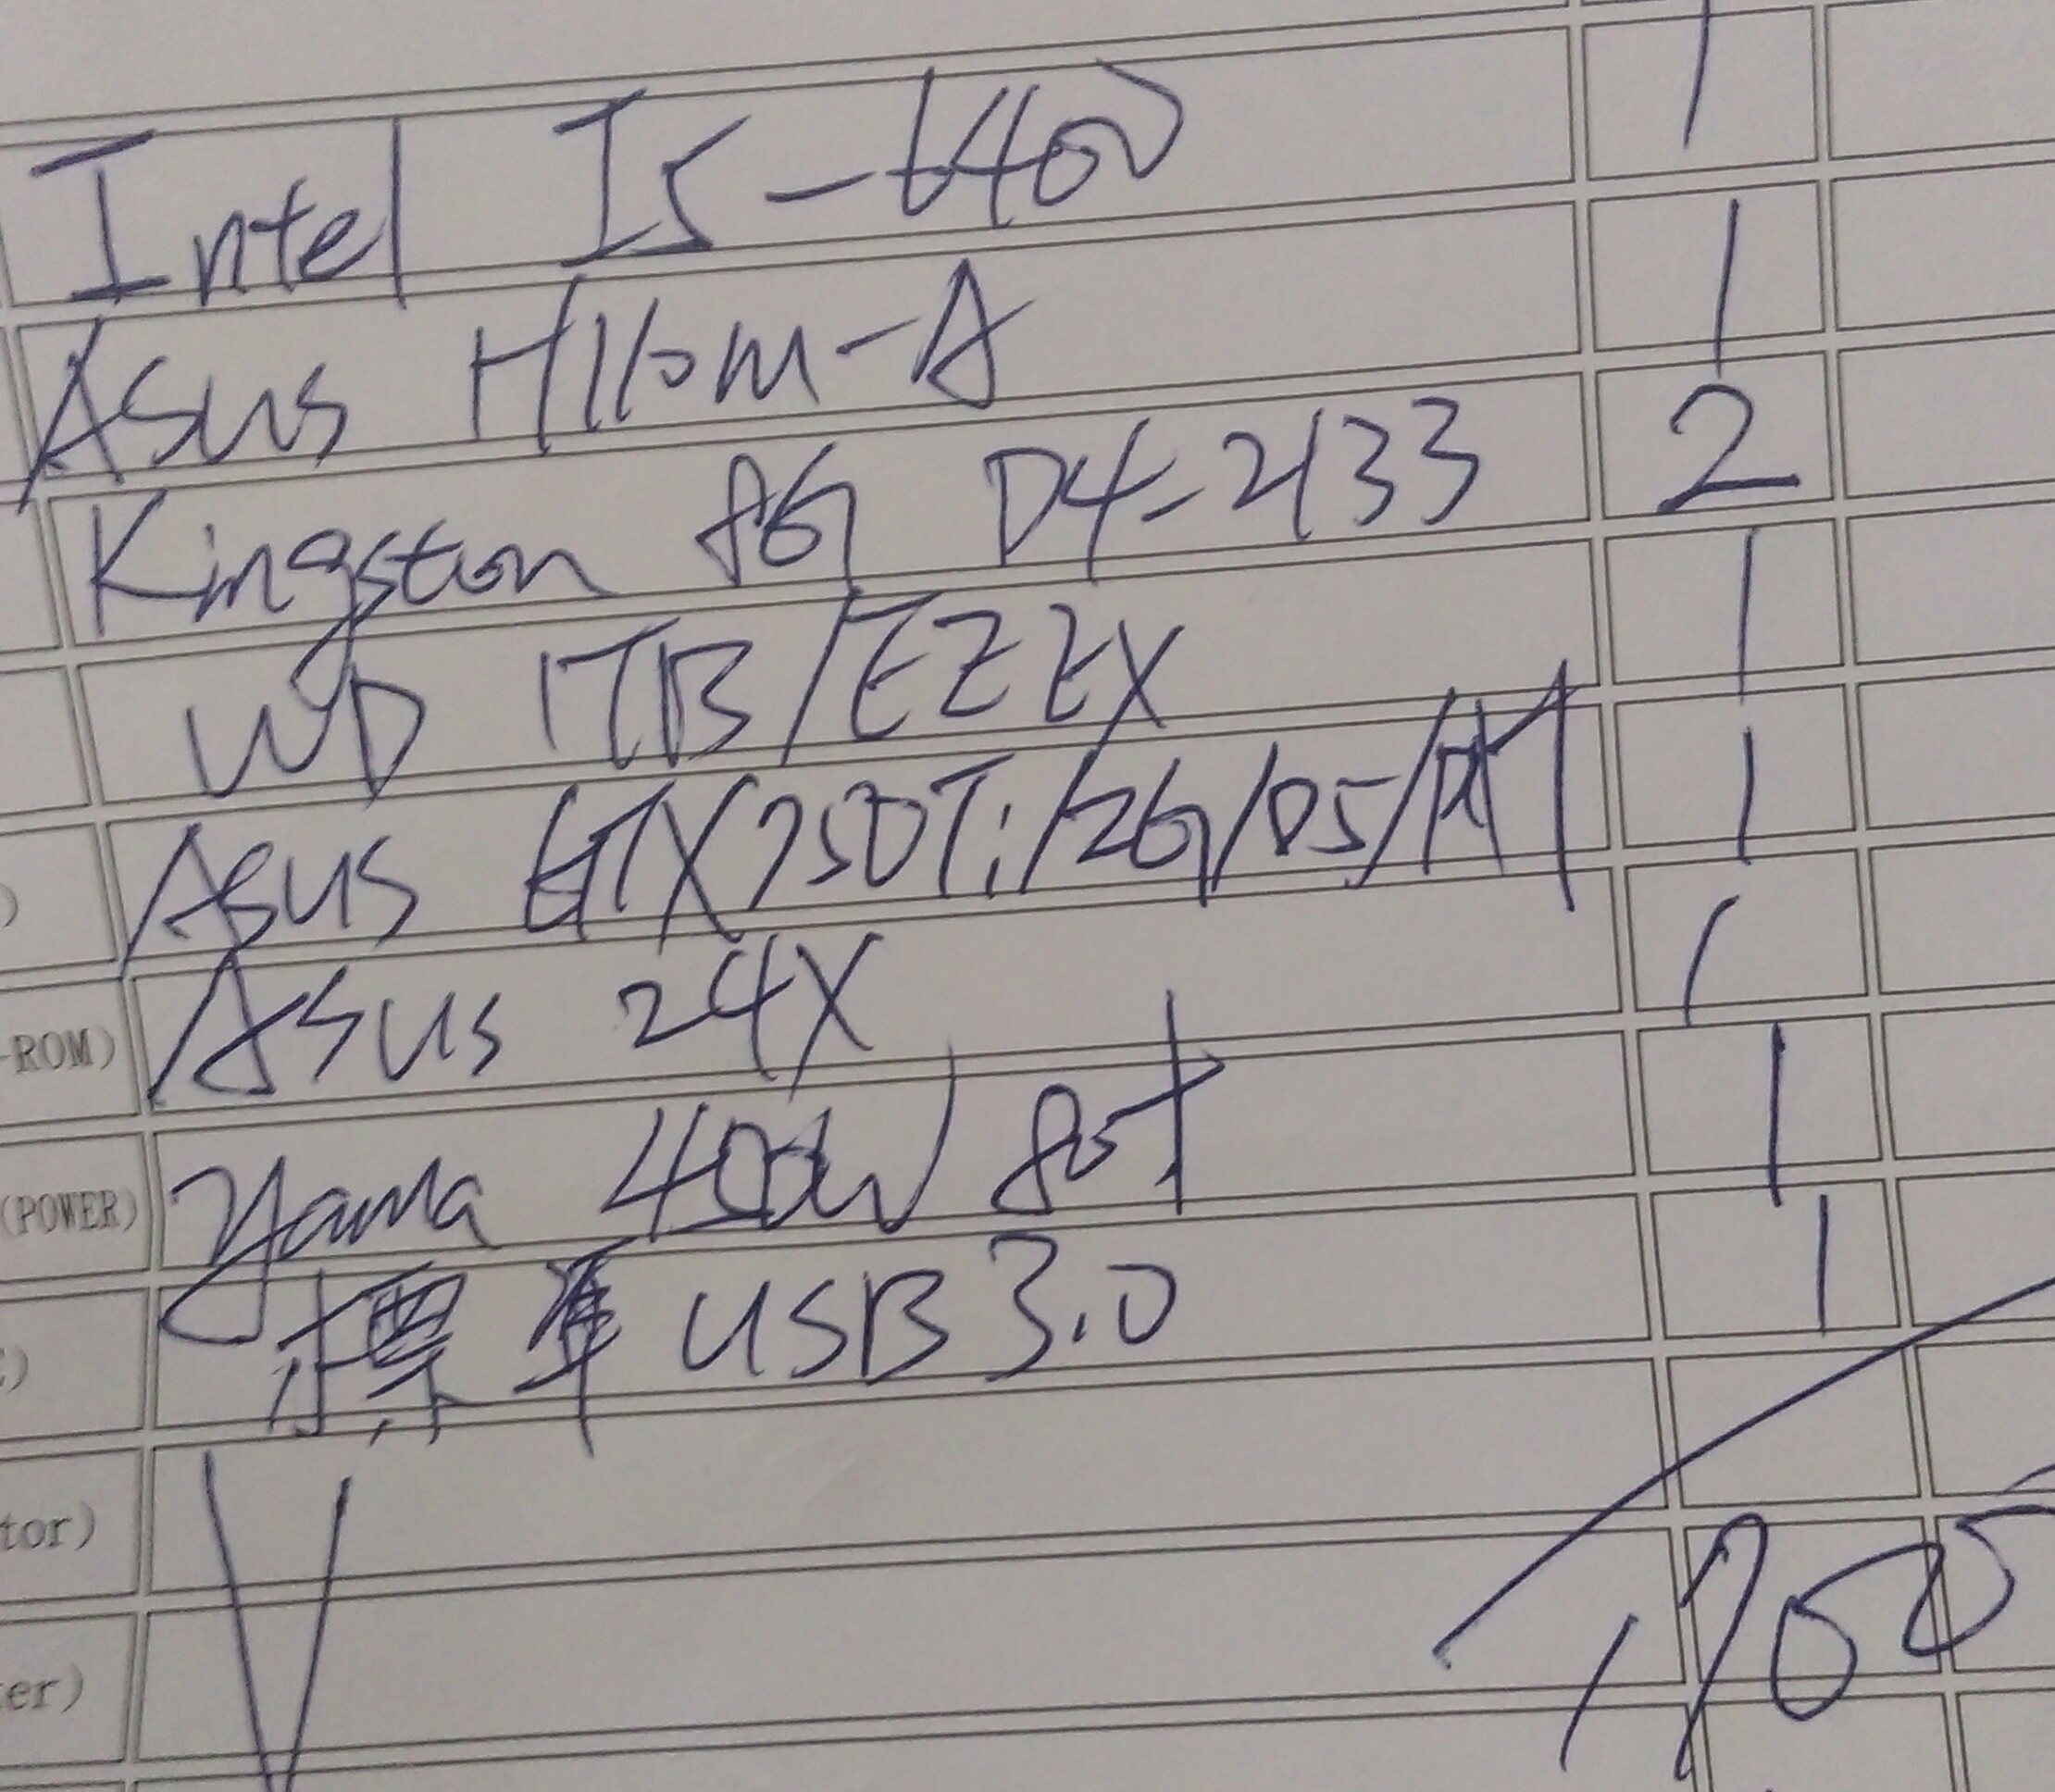 1
Intel I5-6400 1
Asus H110M-A 2
Kingston 8G D4-2133 1
WD 1TB/EZEX 1
) Asus GTX750Ti/2G/D5/ 1
-ROM) Asus 24X 1
(POWER) Yama 400W 80+ 1
標準 USB 3.0
tor)
er)
,900